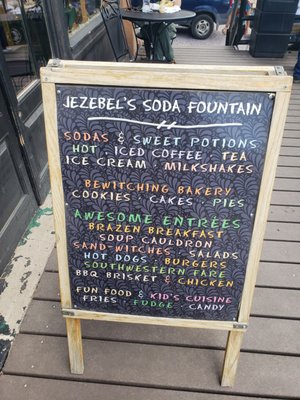 JEZEBEL'S SODA FOUNTAIN
SODAS & SWEET POTIONS
HOT, ICED COFFEE · TEA
ICE CREAM · MILKSHAKES
BEWITCHING BAKERY
COOKIES · CAKES · PIES
AWESOME ENTREES
BRAZEN BREAKFAST
SOUP CAULDRON
SAND-WITCHES · SALADS
HOT DOGS · BURGERS
SOUTHWESTERN FARE
BBQ BRISKET & CHICKEN
FUN FOOD & KID'S CUISINE
FRIES · FUDGE · CANDY